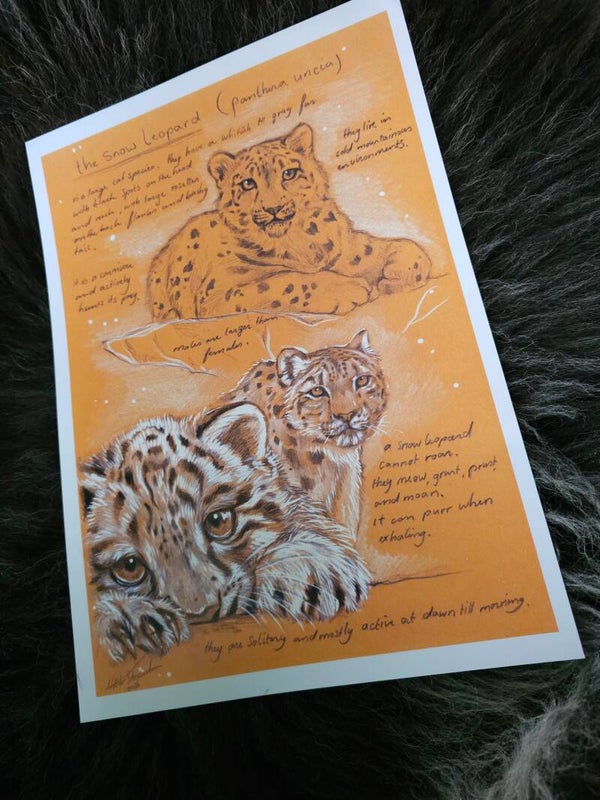 the Snow Leopard (panthera uncia)
is a large cat species. they have a whitish to gray fur
with black spots on the head
and neck, with large rosettes
on the back, flanks and bushy
tail.
they live in
cold mountainous
environments.
it is a carnivore
and actively
hunts its prey.
males are larger than
females.
a snow leopard
cannot roar.
they meow, grunt, prust,
and moan.
it can purr when
exhaling.
they are solitary and mostly active at dawn till morning.